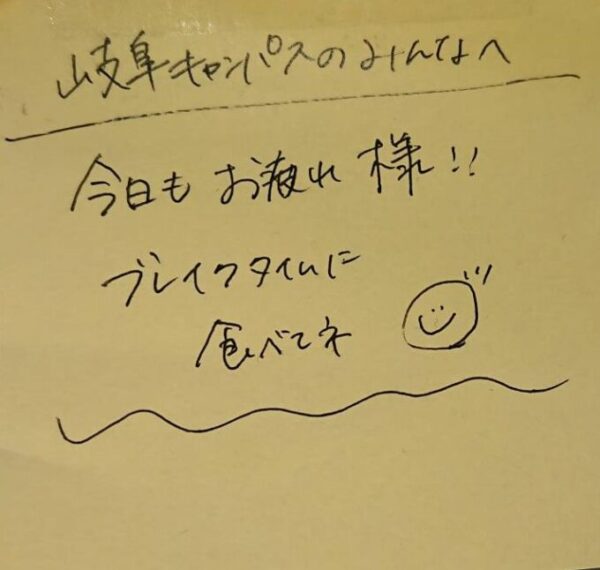 岐阜キャンパスのみんなへ
今日もお疲れ様!!
ブレイクタイムに
食べてネ